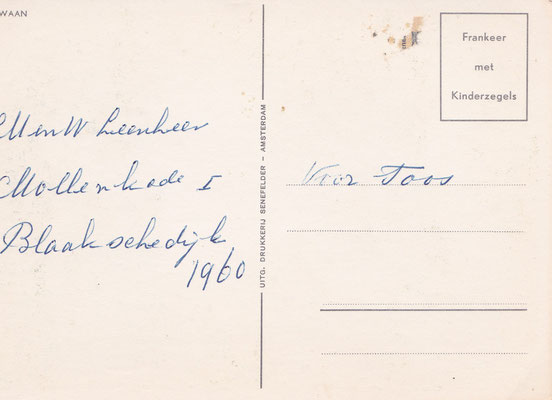 WAAN
M en W Leenheer
Mollenkade I
Blaakschedijk
1960
UITG. DRUKKERIJ SENEFELDER – AMSTERDAM
Frankeer
met
Kinderzegels
Voor Toos